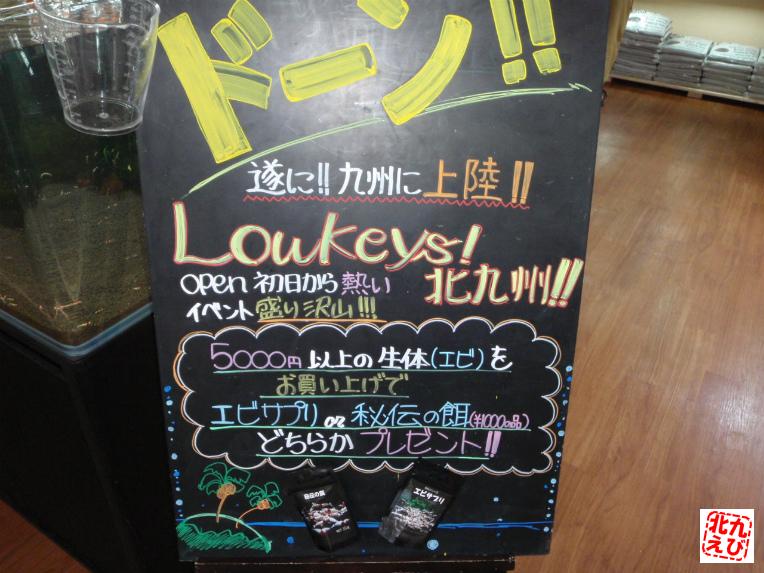 ドーン!!
遂に!! 九州に上陸!!
Lowkeys!
北九州!!
open 初日から熱い
イベント盛り沢山!!!
5000円以上の生体(エビ)を
お買い上げで
エビサプリ or 秘伝の餌(¥1000の品)
どちらかプレゼント!!
秘伝の餌
エビサプリ
北九
えび